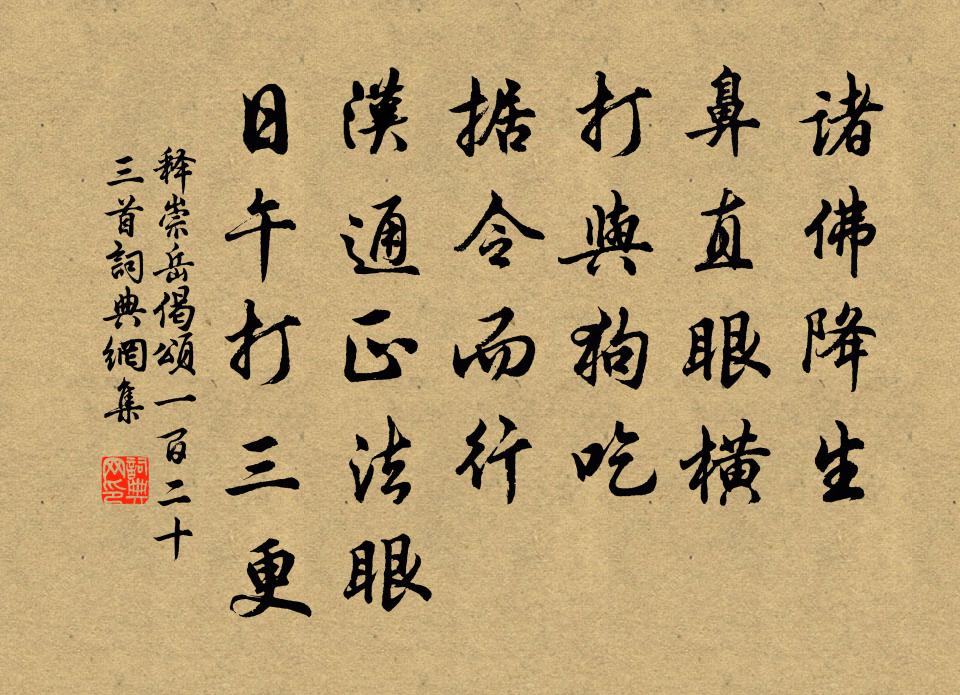 諸佛降生
鼻直眼橫
打與狗吃
据令而行
漢通正法眼
日午打三更
释崇岳偈頌一百二十
三首詞典網集
詞典
网印